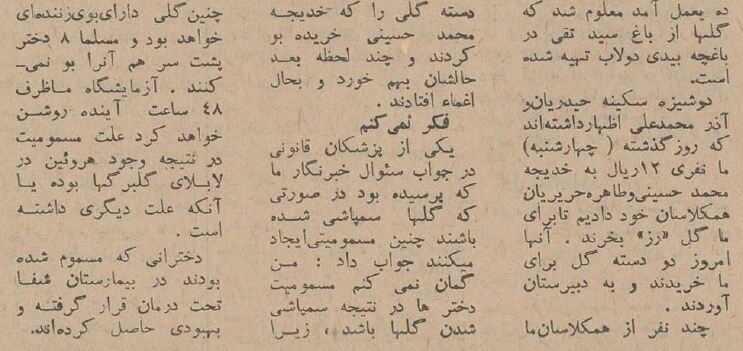 ده بعمل آمد معلوم شد که
گلها از باغ سید تقی در
باغچه بیدی دولاب تهیه شده
است.
دوشیزه سکینه حیدریان و
آذر محمدعلی اظهارداشته‌اند
که روز گذشته ( چهارشنبه )
ما نفری ۱۲ ریال به خدیجه
محمد حسینی وطاهره حریریان
همکلاسان خود دادیم تا برای
ما گل «رز» بخرند . آنها
امروز دو دسته گل برای
ما خریدند و به دبیرستان
آوردند .
چند نفر از همکلاسان ما
دسته گلی را که خدیجه
محمد حسینی خریده بو
کردند و چند لحظه بعد
حالشان بهم خورد و بحال
اغماء افتادند .
فکر نمی‌کنم
یکی از پزشکان قانونی
در جواب سئوال خبرنگار ما
که پرسیده بود در صورتی
که گلها سمپاشی شده
باشند چنین مسمومیتی ایجاد
میکنند جواب داد : من
گمان نمی کنم مسمومیت
دختر ها در نتیجه سمپاشی
شدن گلها باشد ، زیرا
چنین گلی دارای بوی زننده‌ای
خواهد بود و مسلما ۸ دختر
پشت سر هم آنرا بو نمی‌ـ
کنند . آزمایشگاه ما ظرف
۴۸ ساعت آینده روشن
خواهد کرد علت مسمومیت
در نتیجه وجود هروئین در
لابلای گلبرگها بوده یا
آنکه علت دیگری داشته
است .
دخترانی که مسموم شده
بودند در بیمارستان شفا
تحت درمان قرار گرفته و
بهبودی حاصل کرده‌اند.